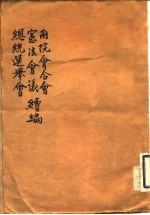 兩院會合會
憲法會議續編
總統選舉會